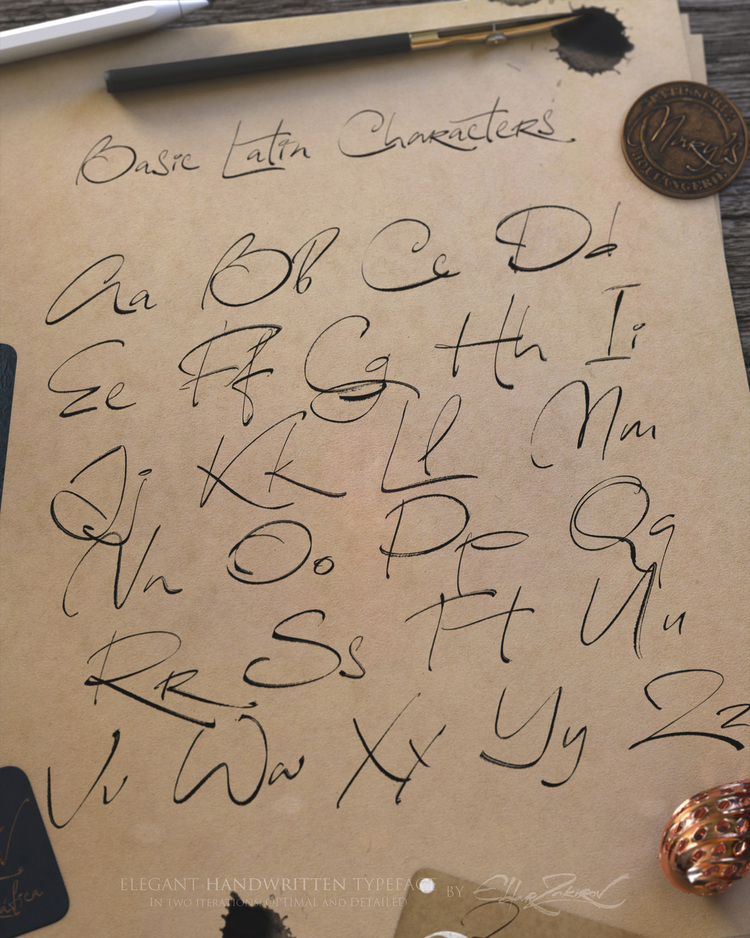 Basic Latin Characters
PATISSERIE
Mary's
BOULANGERIE
Aa Bb Cc Dd
Ee Ff Gg Hh Ii
Jj Kk Ll Mm
Nn Oo Pp Qq
Rr Ss Tt Uu
Vv Ww Xx Yy Zz
ELEGANT HANDWRITTEN TYPEFACE BY Eldar Zakirov
IN TWO ITERATIONS: OPTIMAL AND DETAILED